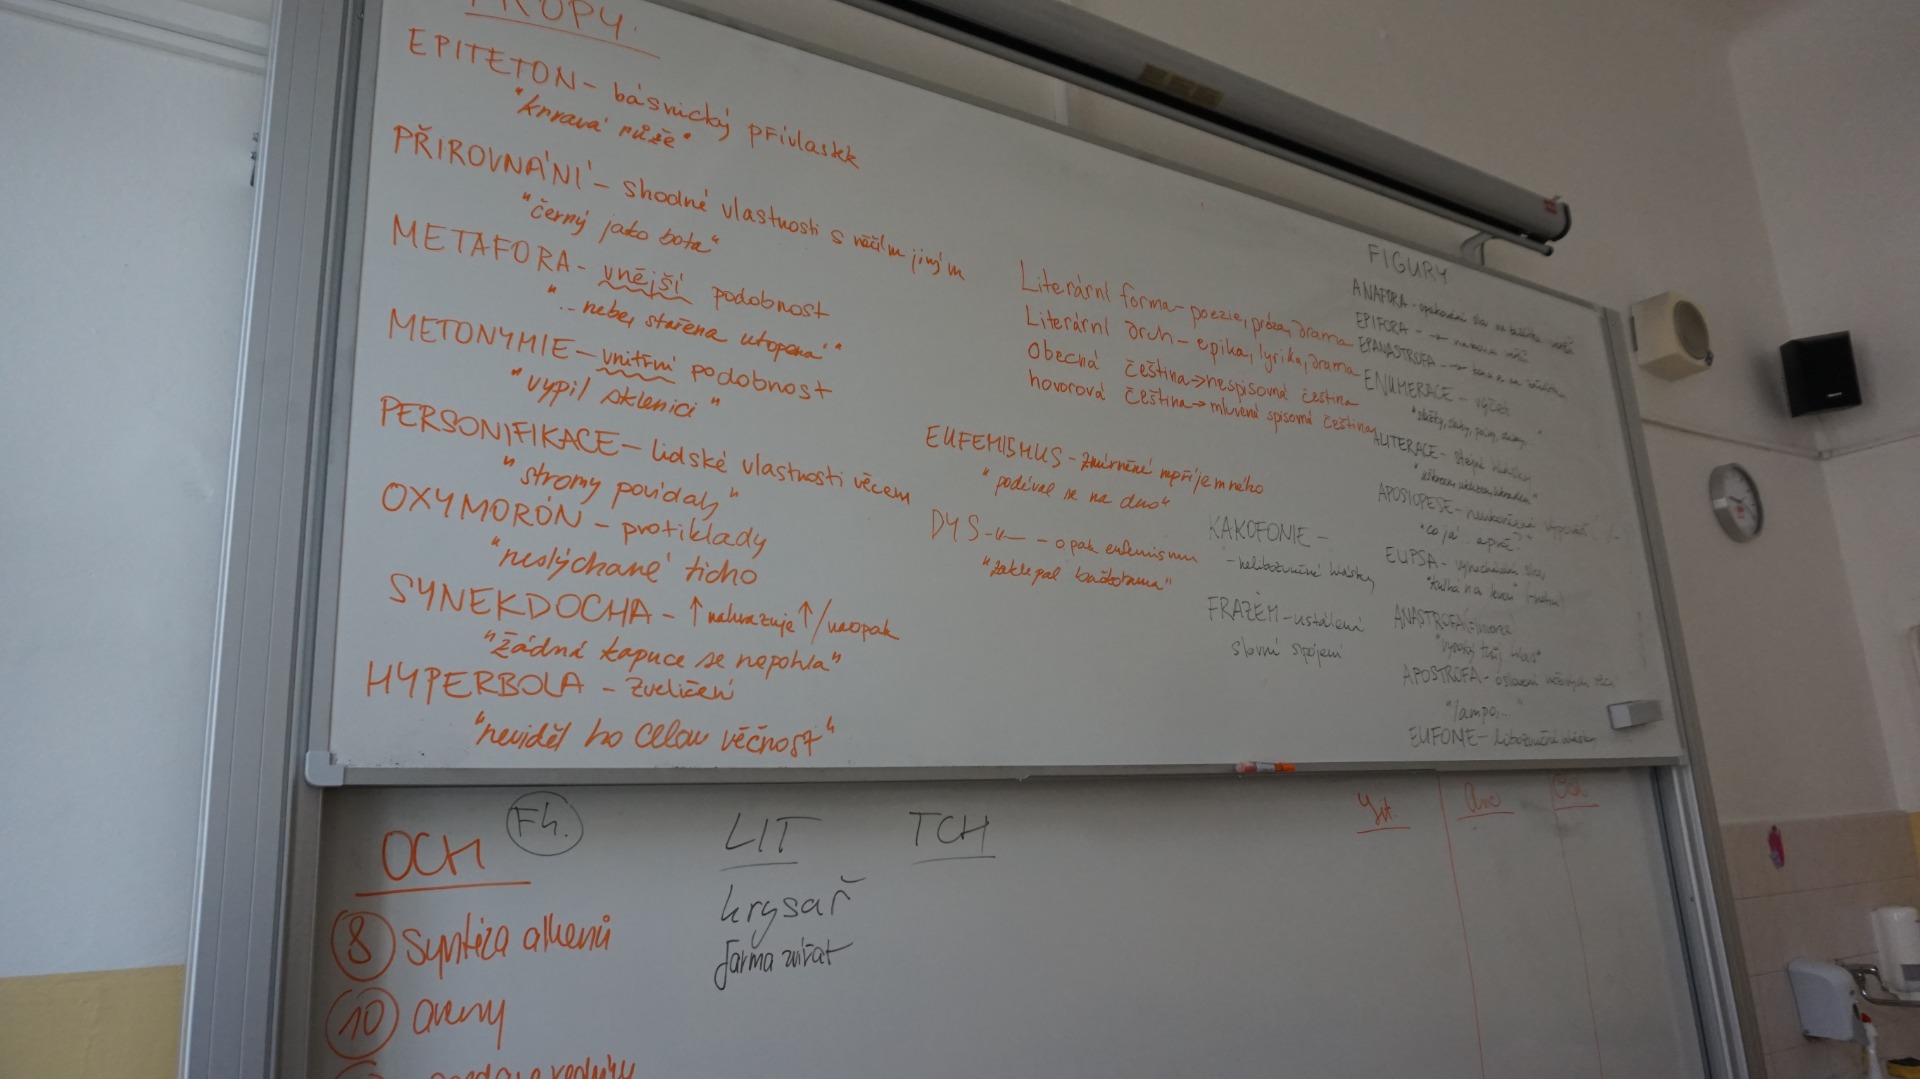 TROPY.
EPITETON - básnický přívlastek
"krvavá růže"
PŘIROVNÁNÍ - shodné vlastnosti s něčím jiným
"černý jako bota"
METAFORA - vnější podobnost
"...nebe, stařena utopena"
METONYMIE - vnitřní podobnost
"vypil sklenici"
PERSONIFIKACE - lidské vlastnosti věcem
"stromy povídaly"
OXYMORÓN - protiklady
"neslýchané ticho"
SYNEKDOCHA - ↑ nahrazuje ↑/naopak
"žádná kapuce se nepohla"
HYPERBOLA - zveličení
"neviděl ho celou věčnost"
Literární forma - poezie, próza, drama
Literární druh - epika, lyrika, drama
Obecná čeština → nespisovná čeština
hovorová čeština → mluvená spisovná čeština
EUFEMISMUS - zmírnění nepříjemného
"podíval se na dno"
DYS - opak eufemismu
"zaklepal bačkorama"
KAKOFONIE -
- nelibozvučné hlásky
FRAZÉM - ustálená
slovní spojení
FIGURY
ANAFORA - opakování slov na začátku
EPIFORA -
EPANASTROFA -
ENUMERACE - výčet
ALITERACE - stejné hlásky
APOSIOPESE - nedokončená
"co já
ELIPSA -
"kulka na
ANASTROFA
"vysoký tvůj hlas"
APOSTROFA - oslovení neživých věcí
"lampo,..."
EUFONIE - libozvučné hlásky
OCH
Fh.
LIT
TCH
krysař
farma zvířat
8 syntéza alkenů
10 areny